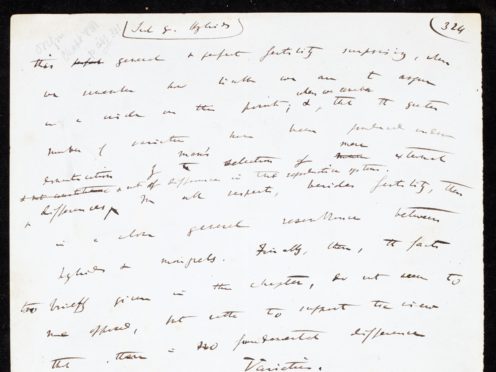 Ind & Hybrids 324
this general & perfect fertility surprising, when
we remember how liable we are to argue
in a circle on this point; &, when we remember that the greater
number of varieties have been produced under
domestication by man's selection of mere external
& not of differences in the reproductive system.
differences, In all respects, besides fertility, there
is a close general resemblance between
hybrids & mongrels. Finally, then, the facts
too briefly given in this chapter, do not seem to
me opposed, but rather to support the view
that there is no fundamental difference
Varieties.